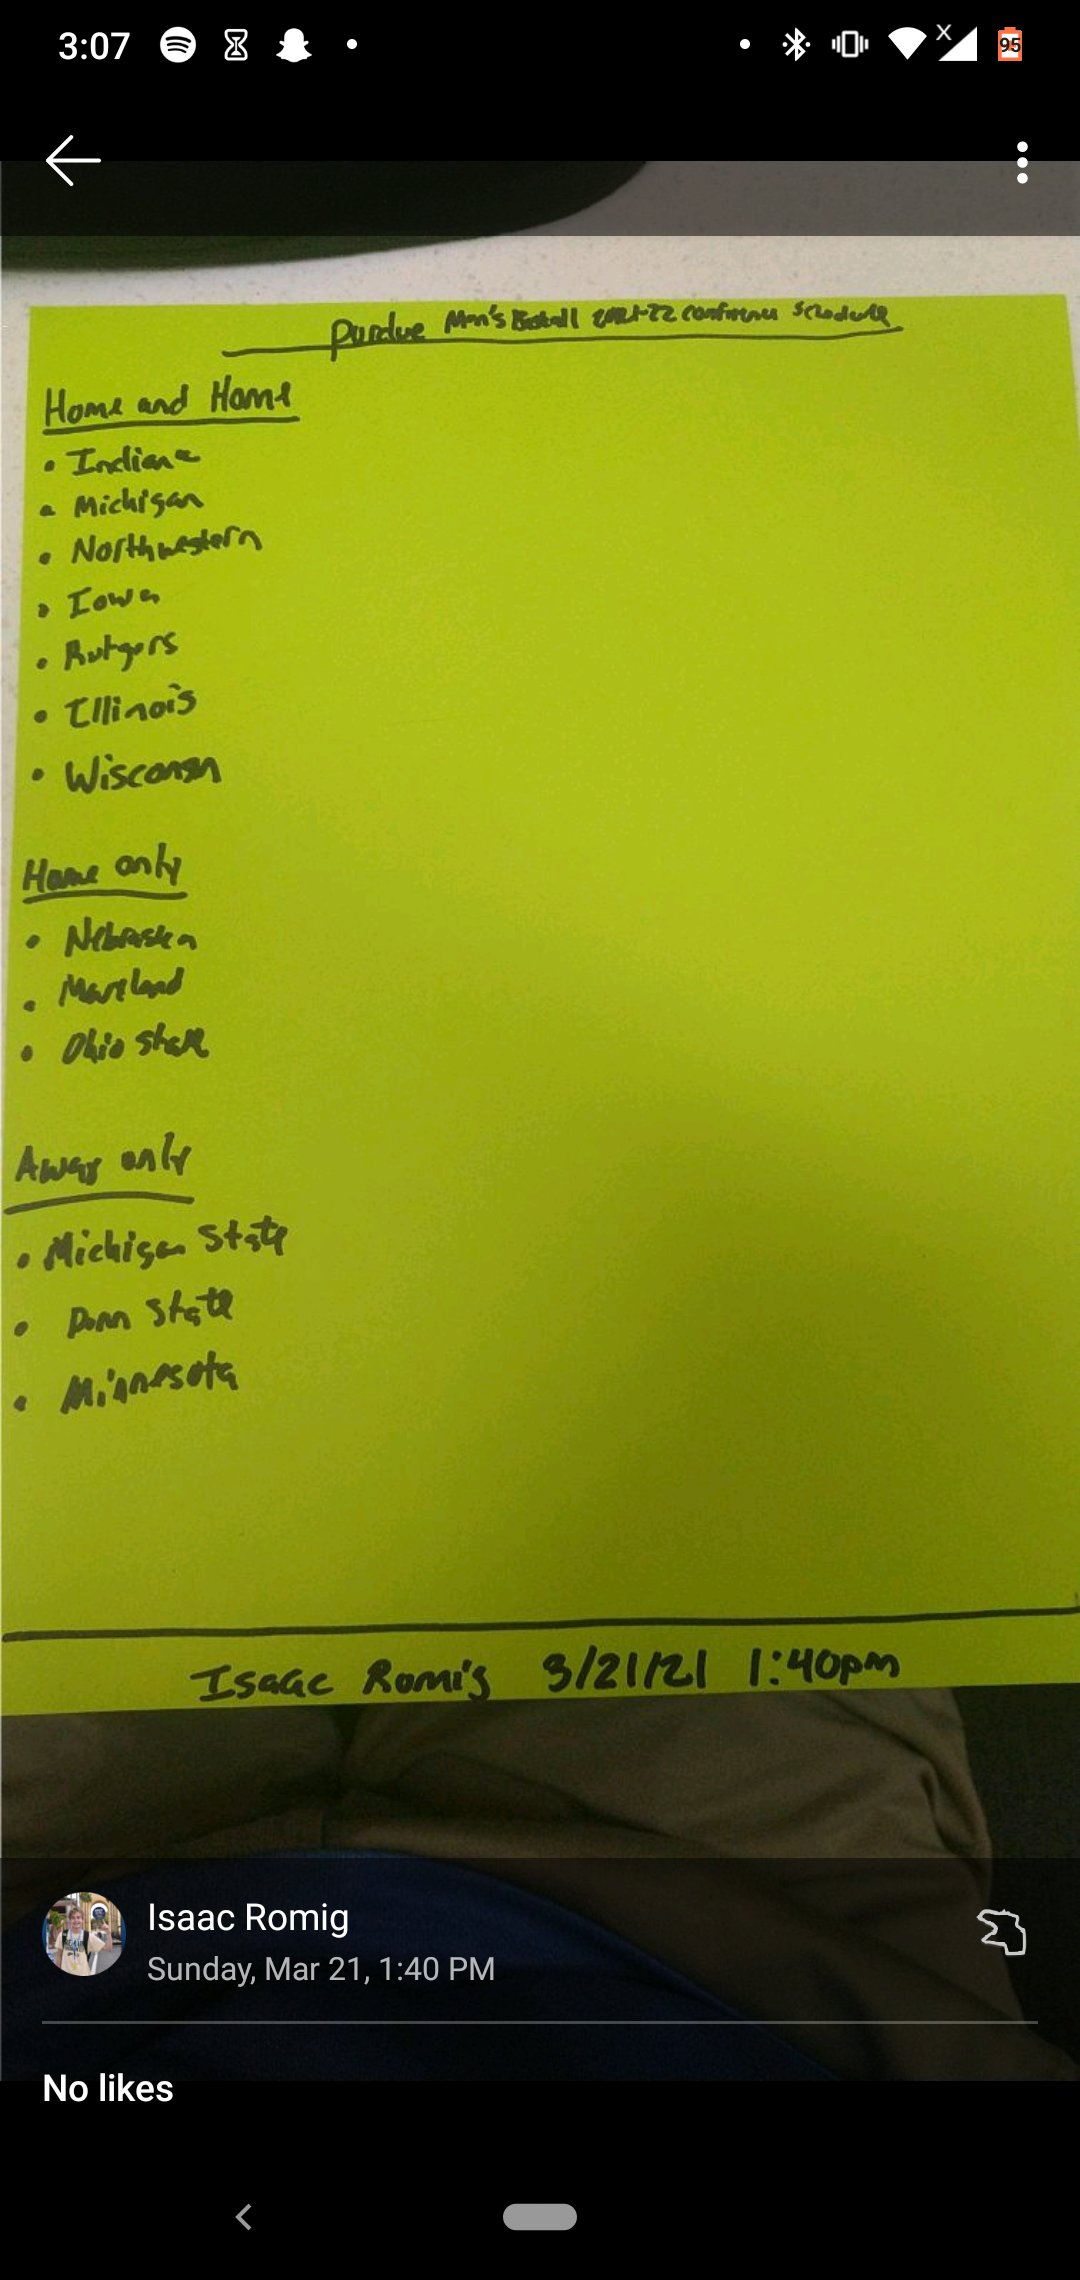 3:07
95
Purdue Men's Bsktball 2021-22 Conference Schedule
Home and Home
• Indiana
• Michigan
• Northwestern
• Iowa
• Rutgers
• Illinois
• Wisconsin
Home only
• Nebraska
• Maryland
• Ohio State
Away only
• Michigan State
• Penn State
• Minnesota
Isaac Romig 3/21/21 1:40pm
Isaac Romig
Sunday, Mar 21, 1:40 PM
No likes